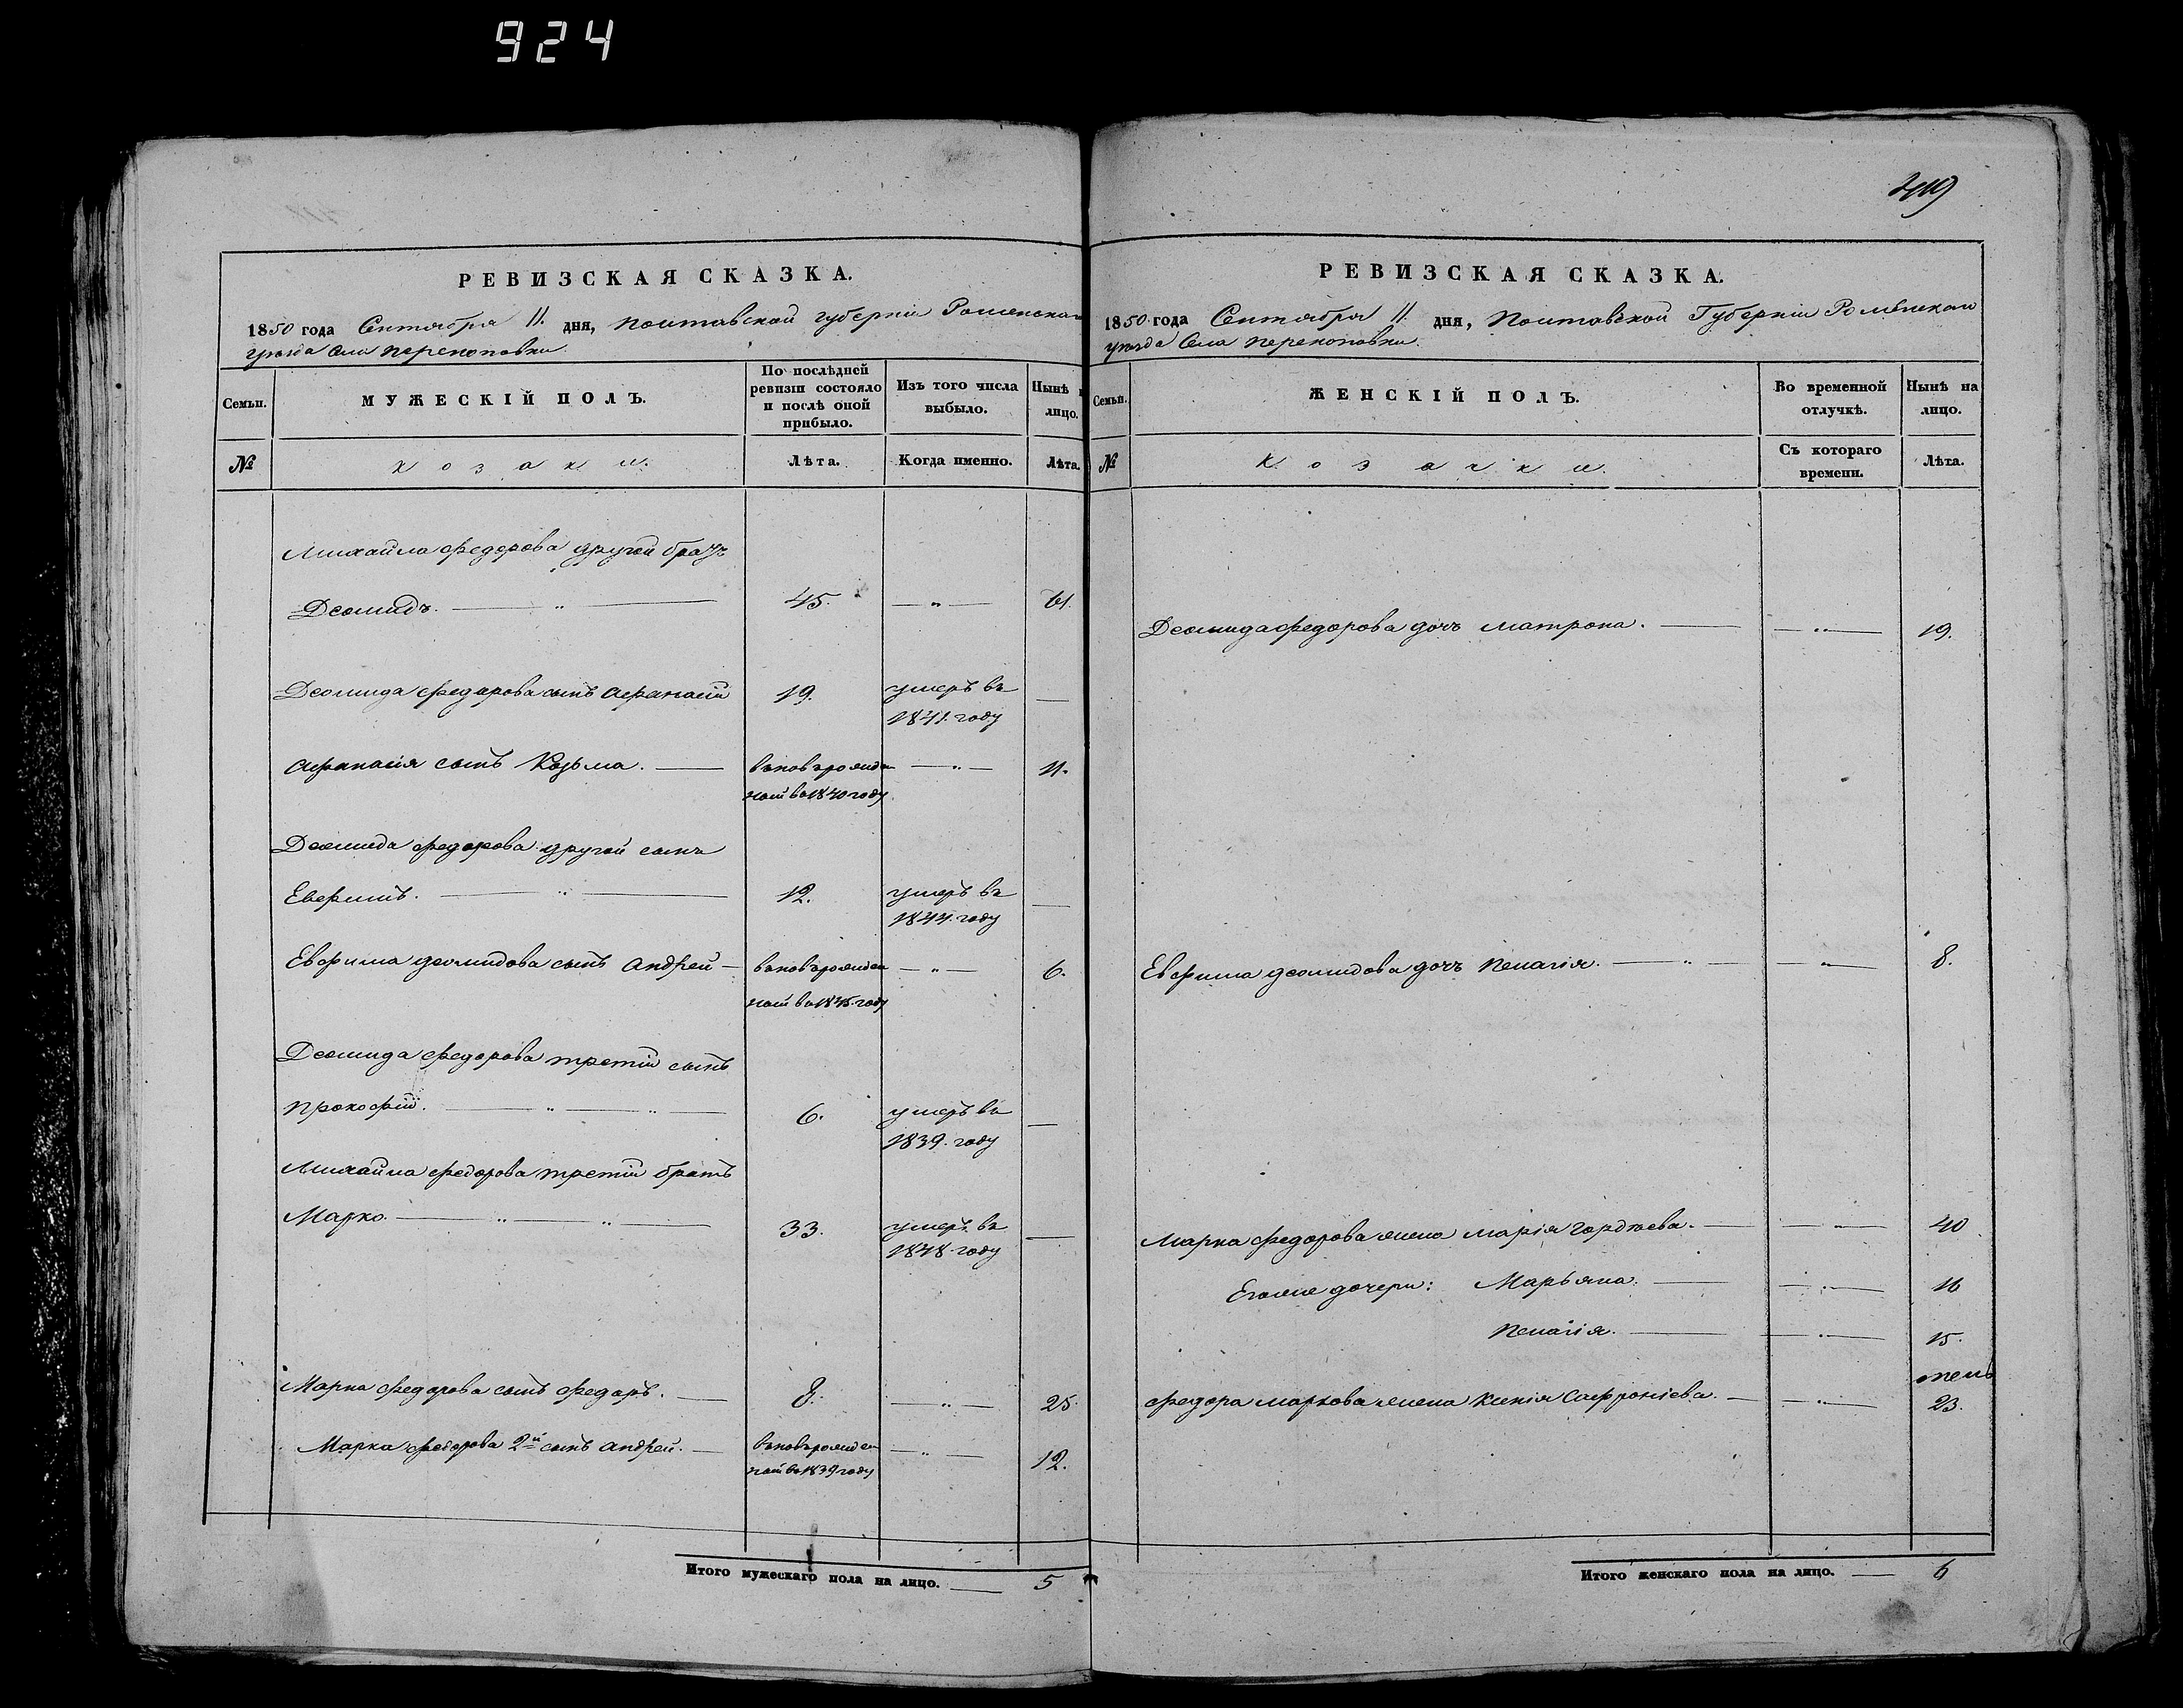 924
419
РЕВИЗСКАЯ СКАЗКА.
1850 года Сентября 11. дня, Полтавской губерніи Роменскаго
уезда Села Перекоповки.
Семьи.
МУЖЕСКІЙ ПОЛЪ.
По послѣдней ревизіи состояло и послѣ оной прибыло.
Изъ того числа выбыло.
Нынѣ
лицо.
№
козаки.
Лѣта.
Когда именно.
Лѣта.
Михайла Федорова другой братъ
Деомидъ. 45. — " — 61.
Деомида Федорова сынъ Афанасій 19. умеръ въ —
1841. году
Афанасія сынъ Козьма. вновьрожден — " — 11.
ной въ 1840 году
Деомида Федорова другой сынъ
Евфимъ. 12. умеръ въ —
1844. году
Евфима Деомидова сынъ Андрей вновьрожден — " — 6.
ной въ 1845. году
Деомида Федорова третій сынъ
Прокофій. 6. умеръ въ —
1839. году
Михайла Федорова третій братъ
Марко. 33. умеръ въ —
1848. году
Марка Федорова сынъ Федоръ. 8. — " — 25.
Марка Федорова 2й сынъ Андрей. вновьрожден — " — 12.
ной въ 1839 году
Итого мужескаго пола на лицо. — 5
РЕВИЗСКАЯ СКАЗКА.
1850 года Сентября 11. дня, Полтавской Губерніи Роменскаго
уезда Села Перекоповки.
Семьи.
ЖЕНСКІЙ ПОЛЪ.
Во временной отлучкѣ.
Нынѣ на лицо.
№
козачки.
Съ котораго времени.
Лѣта.
Деомида Федорова дочь Матрона. — " — 19.
Евфима Деомидова дочь Пелагія. — " — 8.
Марка Федорова жена Марія Гордѣева. — " — 40
Егоже дочери: Марьяна. — " — 16
Пелагія. — " — 15.
Федора Маркова жена Ксенія Сафроніева. — " — 23.
Итого женскаго пола на лицо. — 6